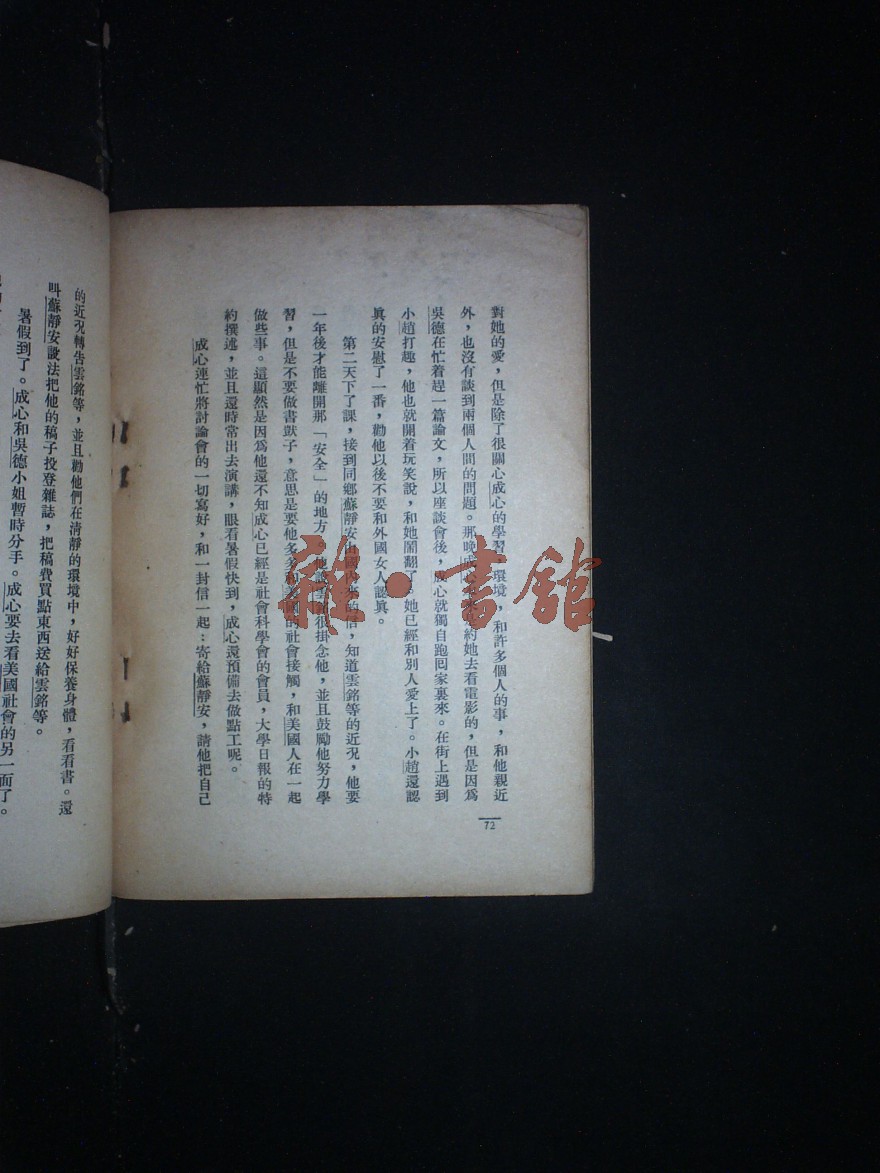 對她的愛，但是除了很關心成心的學習，環境，和許多個人的事，和他親近
外，也沒有談到兩個人間的問題。那晚成心約她去看電影的，但是因爲
吳德在忙着趕一篇論文，所以座談會後，成心就獨自跑囘家裏來。在街上遇到
小趙打趣，他也就開着玩笑說，和她鬧翻了。她已經和別人愛上了。小趙還認
眞的安慰了一番，勸他以後不要和外國女人認眞。
第二天下了課，接到同鄕蘇靜安由國的信，知道雲銘等的近況，他要
一年後才能離開那「安全」的地方。他說很掛念他，並且鼓勵他努力學
習，但是不要做書獃子，意思是要他多多和美國的社會接觸，和美國人在一起
做些事。這顯然是因爲他還不知成心已經是社會科學會的會員，大學日報的特
約撰述，並且還時常出去演講，眼看暑假快到，成心還預備去做點工呢。
成心連忙將討論會的一切寫好，和一封信一起：寄給蘇靜安，請他把自己
72
的近況轉告雲銘等，並且勸他們在清靜的環境中，好好保養身體，看看書。還
叫蘇靜安設法把他的稿子投登雜誌，把稿費買點東西送給雲銘等。
暑假到了。成心和吳德小姐暫時分手。成心要去看美國社會的另一面了。
雜·書館